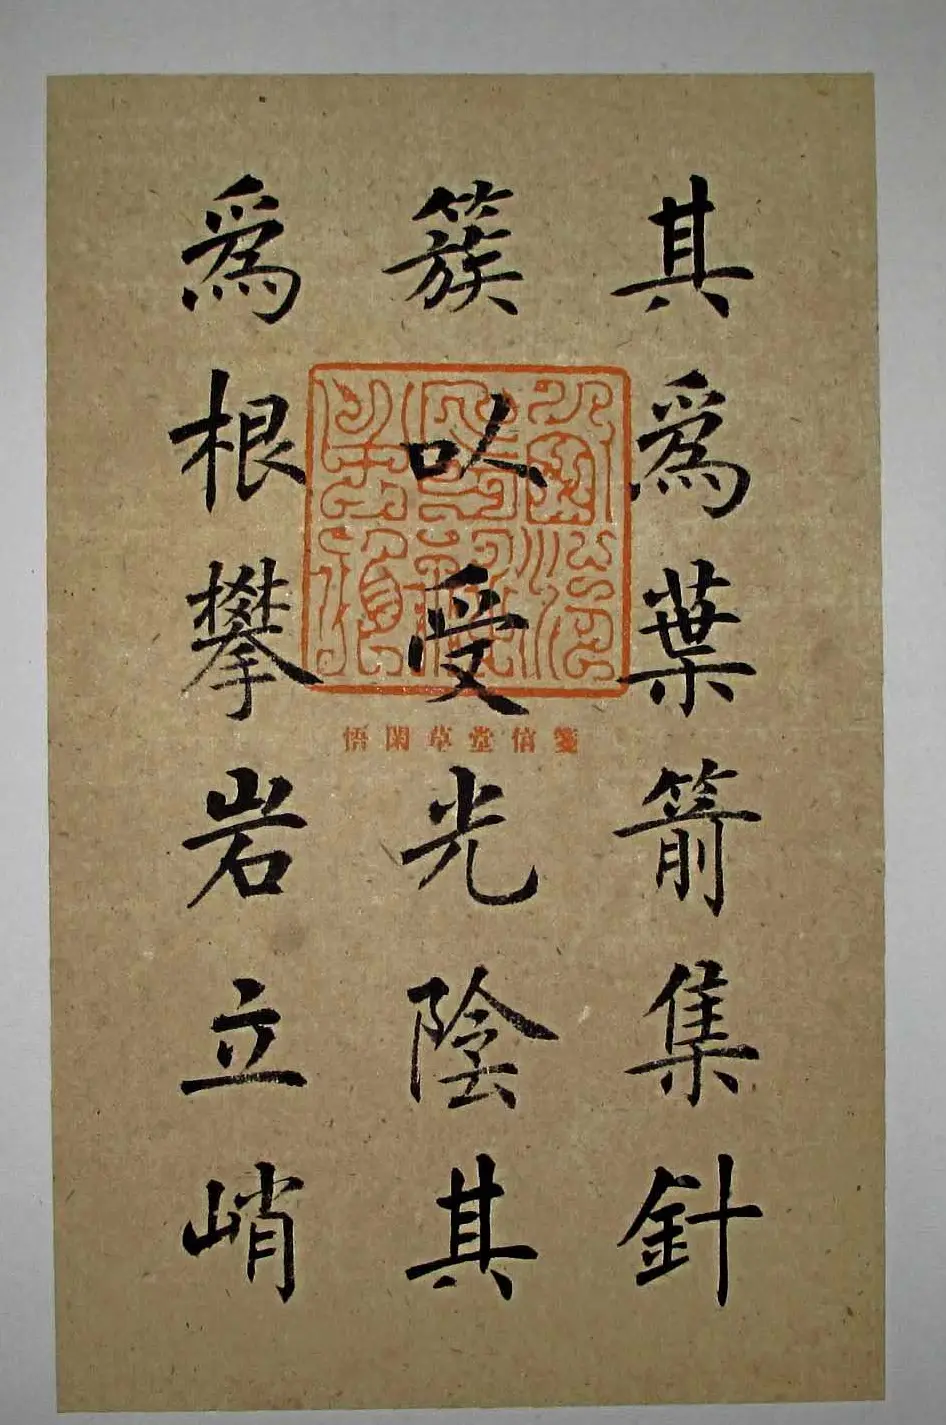 其爲葉箭集針
簇以受光陰其
爲根攀岩立峭
悟閑草堂信箋